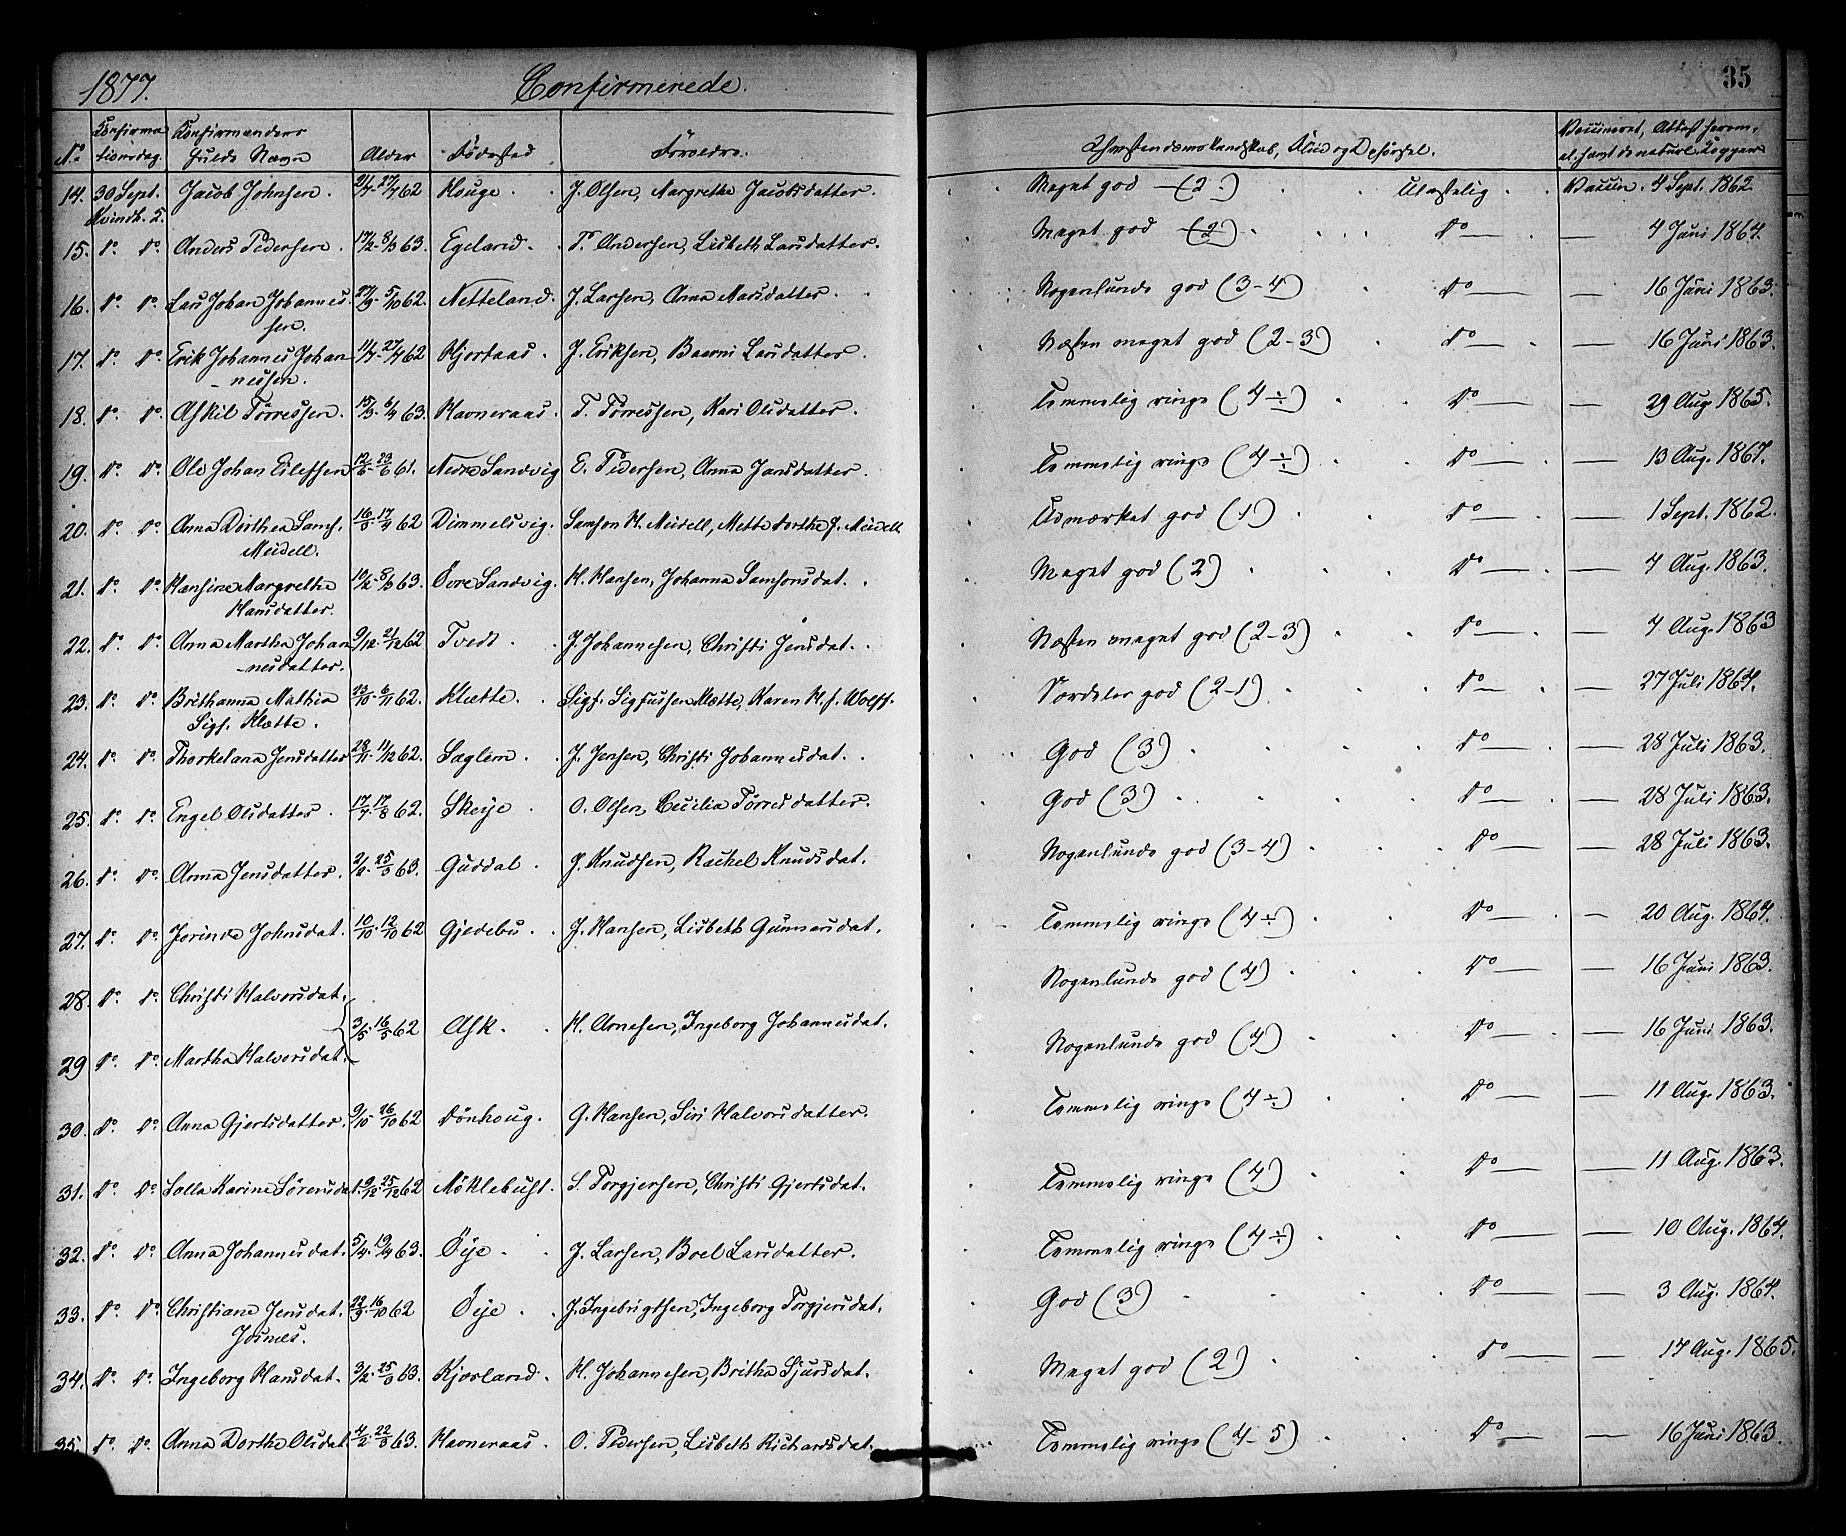 1877. Confirmerede. 35
No Konfirmationsdag. Konfirmandens fulde Navn Alder Fødested Forældre. Christendomskundskab, Flid og Opførsel. Vaccineret, Attest herom,
14. 30 Sept. Jacob Johnsen. 62 Houge. J. Olsen, Margrethe Jacobsdatter. Meget god (2.) Ulastelig Vaccin. 4 Sept. 1862
15. do. do. Anders Pedersen. 17/2 - 8/3 63. Egeland. P. Andersen, Lisbeth Larsdatter. Meget god (2) do 4 Juni 1864.
16. do. do. Lars Johan Johannes- 5/10 62. Netteland. J. Larsen, Anna Marsdatter. Nogenlunde god (3-4) do 16 Juni 1863.
sen.
17. do. do. Erik Johannes Johan- 62 Hjortaas. J. Eriksen, Baarni Larsdatter. Næsten meget god (2-3) do 16 Juni 1863.
-nessen.
18. do. do. Askil Tørressen. 63. Havneraas. T. Tørressen, Kari Olsdatter. Temmelig ringe (4÷) do 29 Aug. 1865.
19. do. do. Ole Johan Eilefsen 12/6 - 23/6 61. Nedre Sandvig E. Pedersen, Anna Jansdatter. Temmelig ringe (4÷) do 13 Aug. 1867.
20. do. do. Anna Dorthea Sams. 62 Dimmelsvig. Samson H. Meidell, Mette Dorthe J. Meidell Udmærket god (1) do 1 Sept. 1862.
Meidell.
21. do. do. Hansine Margrethe 63. Øvre Sandvig. H. Hansen, Johanna Samsonsdat. Meget god (2) do 4 Aug. 1863.
Hansdatter.
22. do. do. Anna Martha Johan- 9/12 - 21/12 62 Tvedt. J. Johannesen, Christi Jensdat. Næsten meget god (2-3) do 4 Aug. 1863
-nesdatter.
23. do. do. Brithanna Mathea 13/10 - 6/11 62. Klætte. Sigf. Sigfussen Klætte, Karen H. f. Wolff. Særdeles god (2-1) do 27 Juli 1864.
Sigf. Klætte.
24. do. do. Thorkelana Jensdatter 28/11 - 11/12 62. Seglem. J. Jensen, Christi Johannesdat. God (3) do 28 Juli 1863.
25. do. do. Engel Olsdatter. 17/7 - 17/8 62. Skeije O. Olsen, Cecilia Tørresdatter. God (3) do 28 Juli 1863.
26. do. do. Anna Jensdatter. 2/2 - 25/3 63. Guddal. J. Knudsen, Rachel Knudsdat. Nogenlunde god (3-4) do 28 Juli 1863.
27. do. do. Jorinda Johnsdat. 10/10 - 12/10 62 Gjedebu. J. Hansen, Lisbeth Gunnersdat. Temmelig ringe (4÷) do 20 Aug. 1864.
28. do. do. Christi Halvorsdat. Nogenlunde god (4) do 16 Juni 1863.
3/5 - 16/5 62 Ask. H. Arnesen, Ingeborg Johannesdat.
29 do. do. Martha Halvorsdat. Nogenlunde god (4) do 16 Juni 1863.
30. do. do. Anna Gjertsdatter. 9/10 - 26/10 62 Dønhoug. G. Hansen, Siri Halvorsdatter. Temmelig ringe (4÷) do 11 Aug. 1863.
31. do. do. Solla Karine Sørensdat. 9/12 - 25/12 62 Møklebust. S. Torgjersen, Christi Gjertsdat. Temmelig ringe (4) do 11 Aug. 1863.
32. do. do. Anna Johannesdat. 5/4 - 19/4 63. Øije. J. Larsen, Boel Larsdatter. Temmelig ringe (4÷) do 10 Aug. 1864.
33. do. do. Christiane Jensdat. 22/9 - 16/10 62 Øije. J. Ingebrigtsen, Ingeborg Torgjersdat. God (3) do 3 Aug. 1864.
Josnes.
34. do. do. Ingeborg Hansdat. 3/2 - 25/3 63. Kjærland. H. Johannesen, Britha Sjursdat. Meget god (2) do 17 Aug. 1865.
35. do. do. Anna Dorthe Olsdat. 4/2 - 22/3 63. Havneraas. O. Pedersen, Lisbeth Richardsdat. Temmelig ringe (4-5) do 16 Juni 1863.